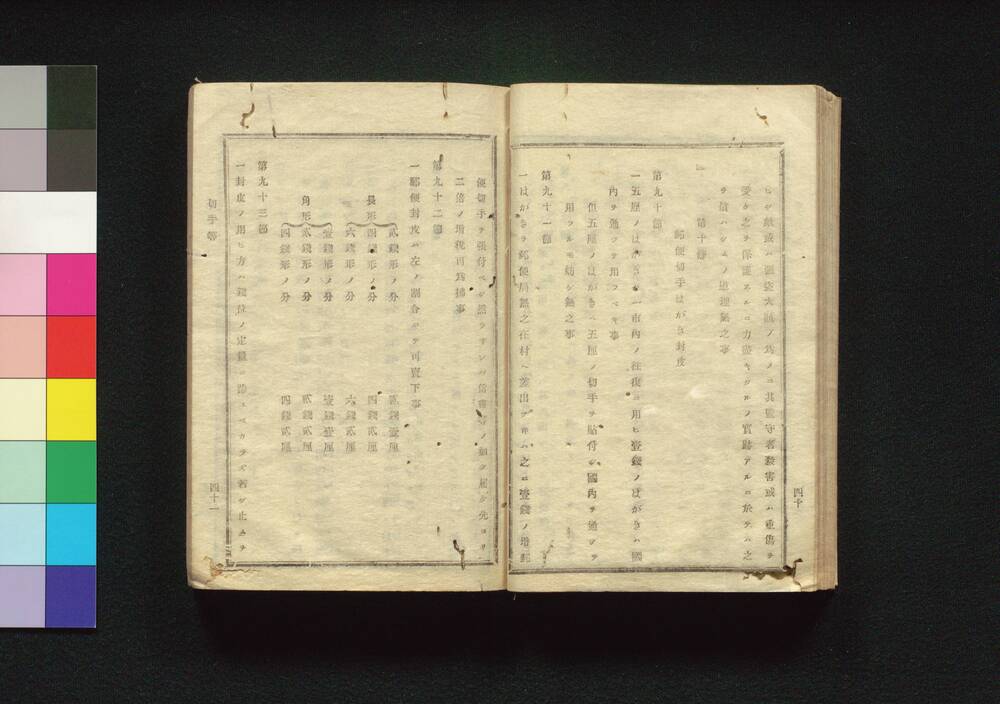 ヒヤ殺或ハ强盜大賊ノ爲メニ其監守者殺害或ハ重傷ヲ
受ケ之ヲ保護スルニ力盡キタルノ實跡アルニ於テハ之
ヲ償ハシムルノ道理無之事
第十
郵便切手はがき封皮
第九十節
一五厘ノはがきハ一市內ノ往復ニ用ヒ壹錢ノはがきハ國
內ヲ通シテ用フヘキ事
但五厘ノはがきヘ五厘ノ切手ヲ貼付シ國內ヲ通シテ
用フルモ妨ケ無之事
第九十一節
一はがきヲ郵便局無之在村ヘ差出ス ハ之ニ壹錢ノ增
四十
便切手ヲ張付ヘシ然ラサレハ信書 ノ如ク屆ケ先ヨリ
二倍ノ增稅可爲拂事
第九十二節
一郵便封皮ハ左ノ割合ヲ以テ可賣下事
長形
貳錢形ノ分 貳錢壹厘
四錢形ノ分 四錢貳厘
六錢形ノ分 六錢貳厘
角形
壹錢形ノ分 壹錢壹厘
貳錢形ノ分 貳錢貳厘
四錢形ノ分 四錢貳厘
第九十三節
一封皮ノ用ヒ方ハ錢位ノ定量ニ ユベカラズ若シ止ムヲ
切手等
四十一